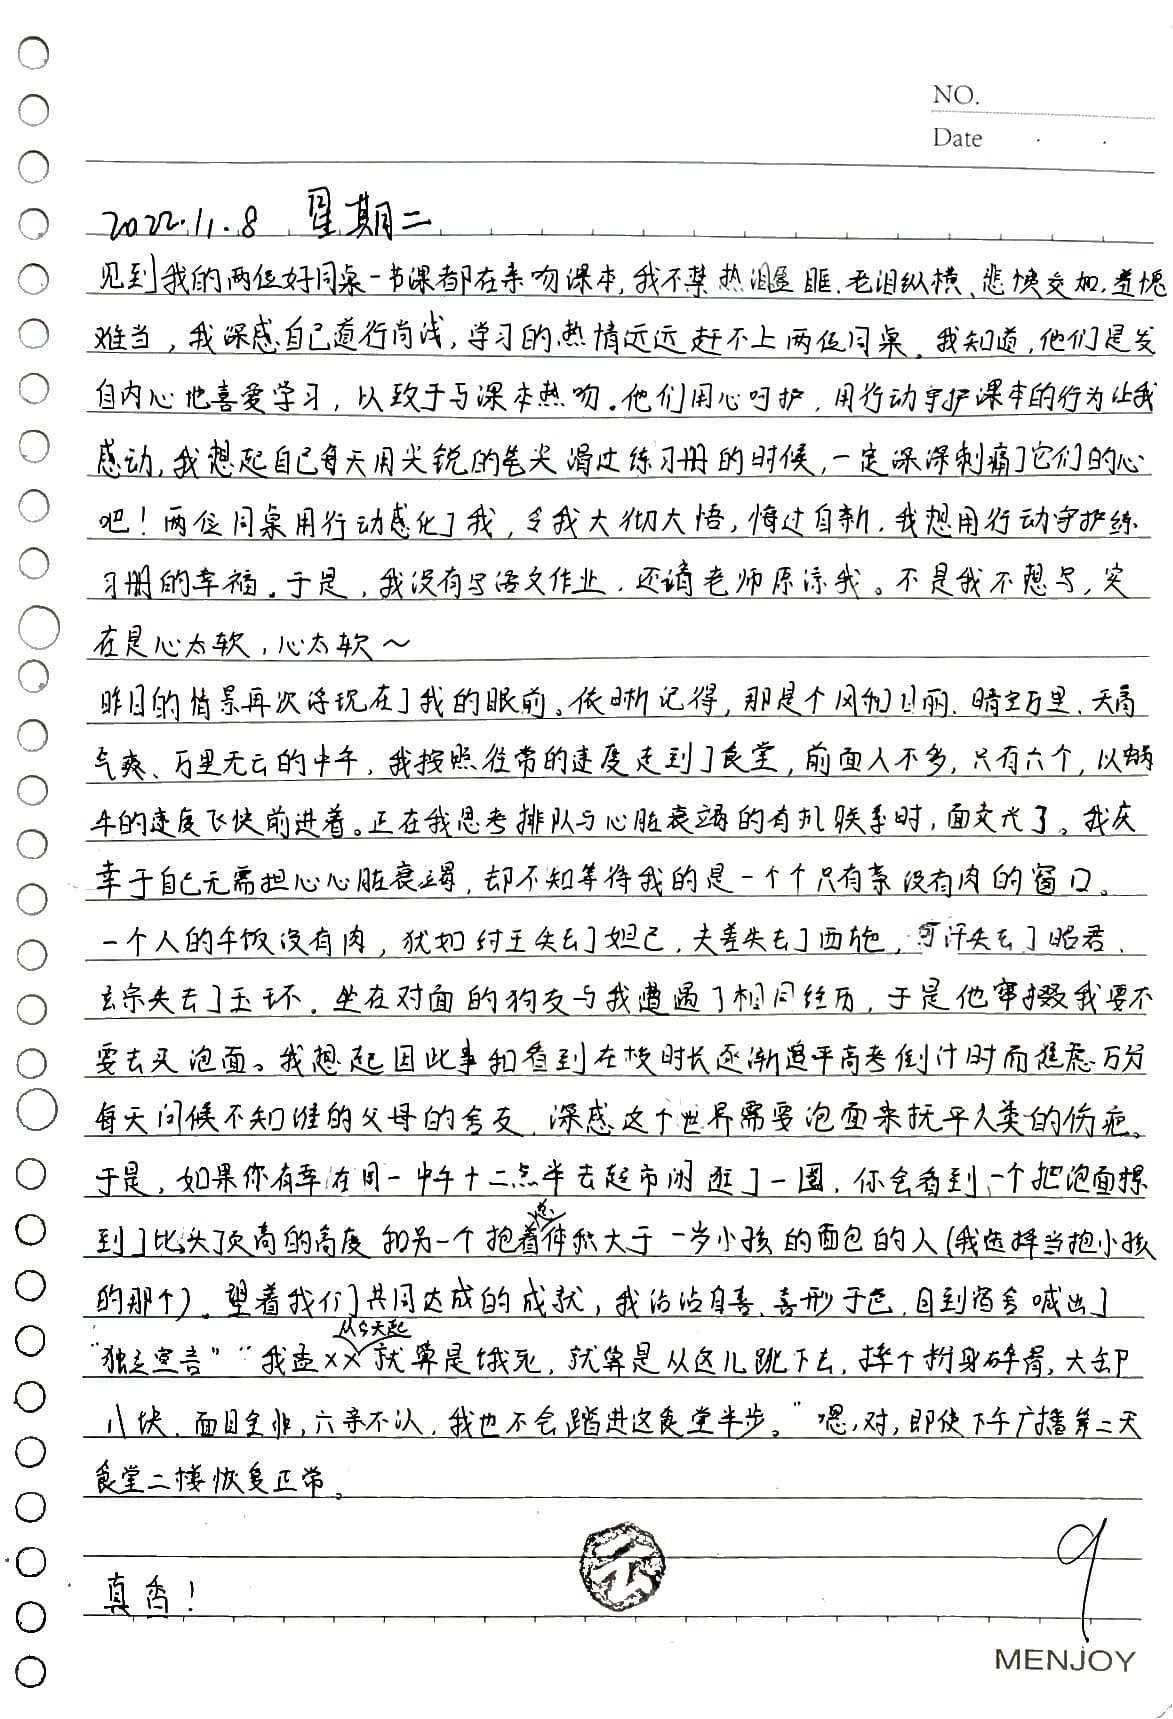 NO.
Date
2022.11.8 星期二
见到我的两位好同桌一节课都在亲吻课本,我不禁热泪盈眶、老泪纵横、悲愧交加、羞愧
难当,我深感自己道行尚浅,学习的热情远远赶不上两位同桌。我知道,他们是发
自内心地喜爱学习,以致于与课本热吻。他们用心呵护,用行动守护课本的行为让我
感动,我想起自己每天用尖锐的笔尖滑过练习册的时候,一定深深刺痛了它们的心
吧!两位同桌用行动感化了我,令我大彻大悟,悔过自新,我想用行动守护练
习册的幸福。于是,我没有写语文作业,还请老师原谅我。不是我不想写,实
在是心太软,心太软~
昨日的情景再次浮现在了我的眼前。依晰记得,那是个风和日丽、晴空万里、天高
气爽、万里无云的中午,我按照往常的速度走到了食堂,前面人不多,只有六个,以蜗
牛的速度飞快前进着。正在我思考排队与心脏衰竭的有机联系时,面卖光了。我庆
幸于自己无需担心心脏衰竭,却不知等待我的是一个个只有菜没有肉的窗口。
一个人的午饭没有肉,犹如纣王失去了妲己,夫差失去了西施,可汗失去了昭君、
玄宗失去了玉环。坐在对面的狗友与我遭遇了相同经历,于是他窜掇我要不
要去买泡面。我想起因此事和看到在校时长逐渐追平高考倒计时而焦虑万分
每天问候不知谁的父母的舍友,深感这个世界需要泡面来抚平人类的伤疤。
于是,如果你有幸在周一中午十二点半去超市闲逛了一圈,你会看到一个把泡面摞
到了比头顶高的高度和另一个抱着总体积大于一岁小孩的面包的人(我选择当抱小孩
的那个)。望着我们共同达成的成就,我沾沾自喜、喜形于色,回到宿舍喊出了
“独立宣言”“我孟××从今天起就算是饿死,就算是从这儿跳下去,摔个粉身碎骨,大卸
八块、面目全非,六亲不认,我也不会踏进这食堂半步。”嗯,对,即使下午广播第二天
食堂二楼恢复正常。
真香!
云
9
MENJOY